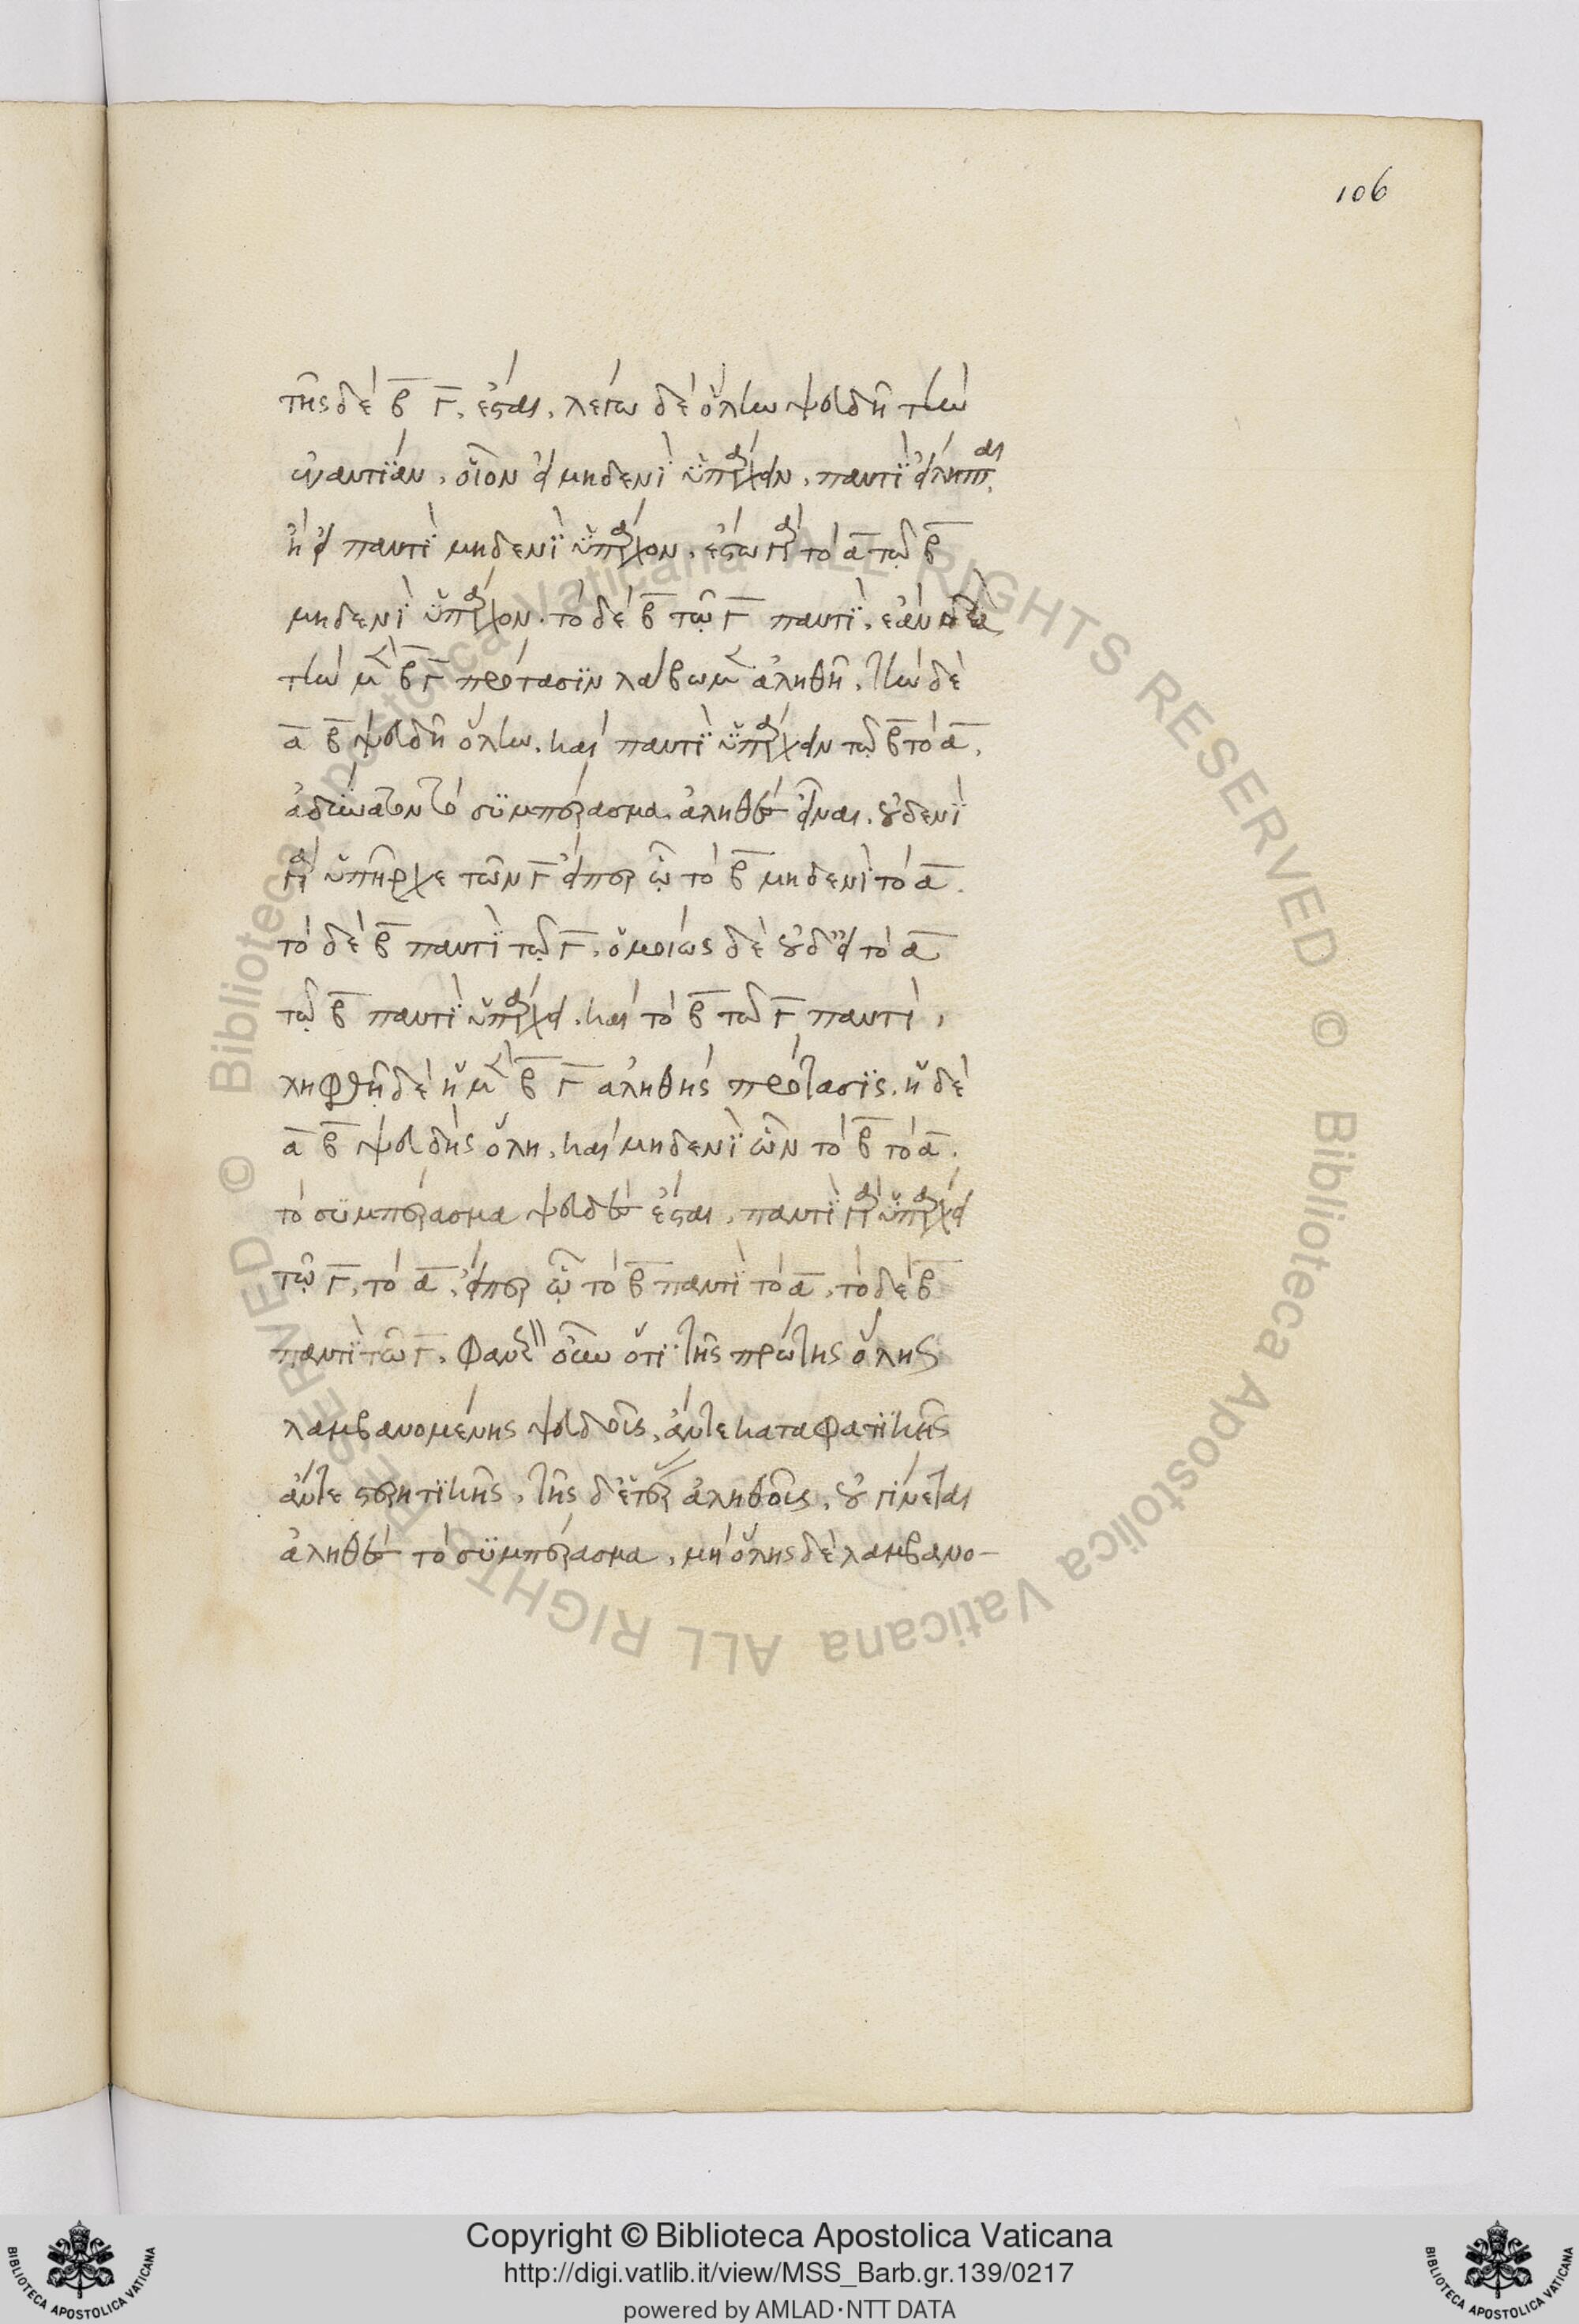 106
τῆς δὲ β̅ γ̅, ἔσται. λέγω δὲ ὅλην ψευδῆ τὴν
ἐναντίαν. οἷον εἰ μηδενὶ ὑπάρχειν, παντὶ εἴληπται.
ἢ εἰ παντὶ μηδενὶ ὑπάρχον. ἔστω γὰρ τὸ α̅ τῷ β̅
μηδενὶ ὑπάρχον. τὸ δὲ β̅ τῷ γ̅ παντί. ἐὰν δὲ
τὴν μὲν β̅ γ̅ πρότασιν λάβωμεν ἀληθῆ, τὴν δὲ
α̅ β̅ ψευδῆ ὅλην. καὶ παντὶ ὑπάρχειν τῷ β̅ τὸ α̅.
ἀδύνατον τὸ συμπέρασμα ἀληθὲς εἶναι. οὐδενὶ
γὰρ ὑπῆρχε τῶν γ̅ εἴπερ ᾧ τὸ β̅ μηδενὶ τὸ α̅.
τὸ δὲ β̅ παντὶ τῷ γ̅. ὁμοίως δὲ οὐδ' εἰ τὸ α̅
τῷ β̅ παντὶ ὑπάρχει. καὶ τὸ β̅ τῷ γ̅ παντὶ,
ληφθῇ δὲ ἡ μὲν β̅ γ̅ ἀληθὴς πρότασις. ἡ δὲ
α̅ β̅ ψευδὴς ὅλη. καὶ μηδενὶ ὧν τὸ β̅ τὸ α̅.
τὸ συμπέρασμα ψευδὲς ἔσται. παντὶ γὰρ ὑπάρχει
τῷ γ̅, τὸ α̅. εἴπερ ᾧ τὸ β̅ παντὶ τὸ α̅, τὸ δὲ β̅
παντὶ τῷ γ̅. φανερὸν οὖν ὅτι τῆς πρώτης ὅλης
λαμβανομένης ψευδοῦς, ἄν τε καταφατικῆς
ἄν τε στερητικῆς, τῆς δ' ἑτέρας ἀληθοῦς, οὐ γίνεται
ἀληθὲς τὸ συμπέρασμα. μὴ ὅλης δὲ λαμβανο-
© Biblioteca Apostolica Vaticana ALL RIGHTS RESERVED © Biblioteca Apostolica Vaticana ALL RIGHTS RESERVED
Copyright © Biblioteca Apostolica Vaticana
http://digi.vatlib.it/view/MSS_Barb.gr.139/0217
powered by AMLAD·NTT DATA
BIBLIOTECA APOSTOLICA VATICANA
BIBLIOTECA APOSTOLICA VATICANA